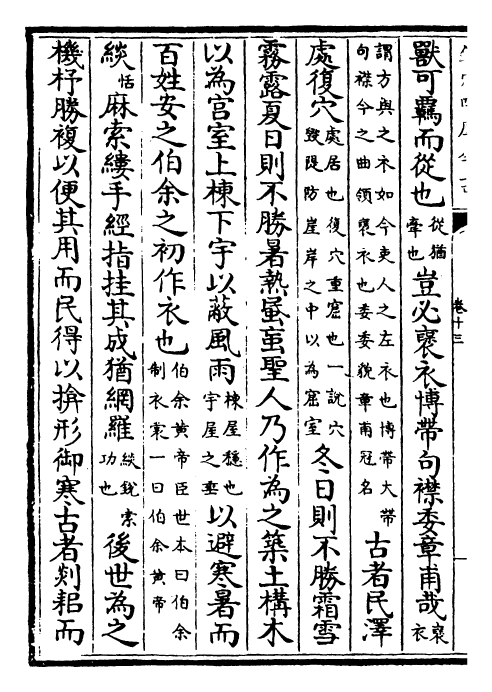 獸可羈而從也從猶牽也豈必褒衣博帶句襟委章甫哉褒衣
謂方與之衣如今吏人之左衣也博帶大帶句襟今之曲領褒衣也委委貌章甫冠名古者民澤
處復穴處居也復穴重窟也一說穴毀隄防崖岸之中以為窟室冬日則不勝霜雪
霧露夏日則不勝暑熱蚉䖟聖人乃作為之築土構木
以為宮室上棟下宇以蔽風雨棟屋檼也宇屋之垂以避寒暑而
百姓安之伯余之初作衣也伯余黃帝臣世本曰伯余制衣裳一曰伯余黃帝
緂恬麻索縷手經指挂其成猶網羅緂銳索功也後世為之
機杼勝複以便其用而民得以揜形御寒古者剡耜而
卷十三